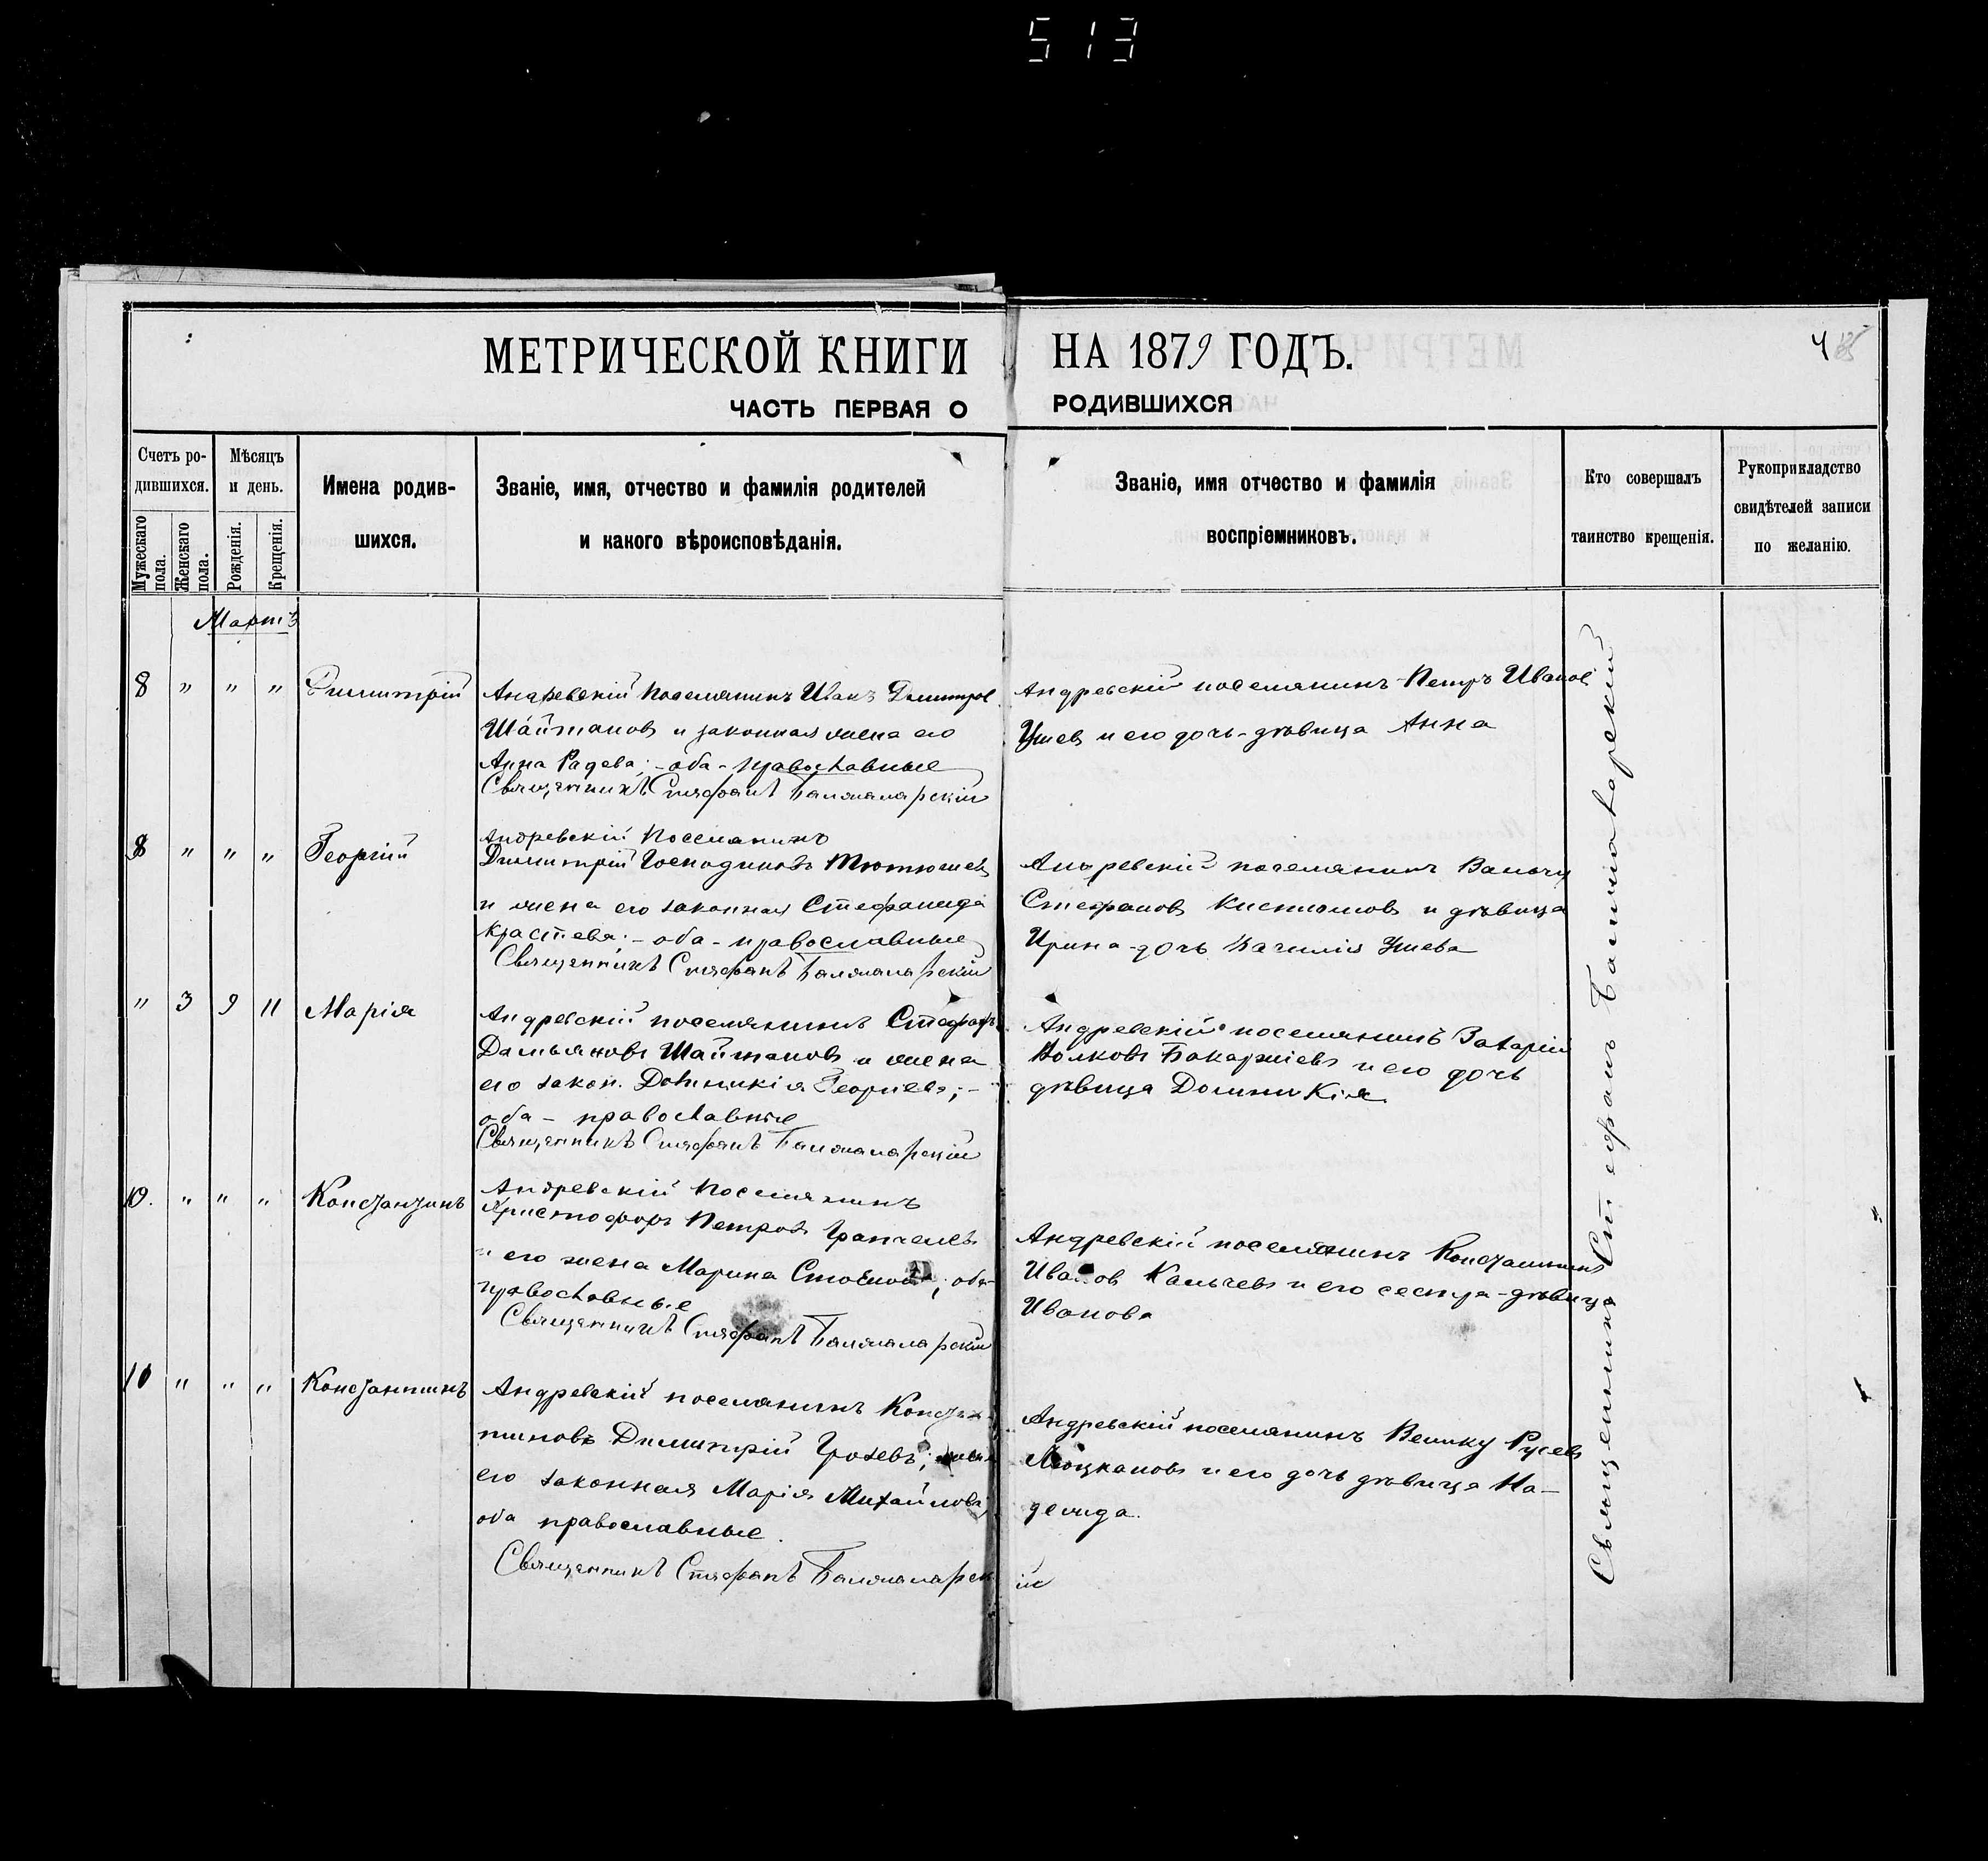 513
МЕТРИЧЕСКОЙ КНИГИ НА 1879 ГОДЪ.
4
ЧАСТЬ ПЕРВАЯ О РОДИВШИХСЯ
Счетъ ро-
дившихся.
Мужескаго пола.
Женскаго пола.
Мѣсяцъ
и день.
Рожденія.
Крещенія.
Имена родив-
шихся.
Званіе, имя, отчество и фамилія родителей
и какого вѣроисповѣданія.
Званіе, имя отчество и фамилія
воспріемниковъ.
Кто совершалъ
таинство крещенія.
Рукоприкладство
свидѣтелей записи
по желанію.
Мартъ
8 " " " Димитрій
Андревскій поселянинъ Иванъ Димитров
Шайтановъ и законная жена его
Анна Радева; - оба - православные
Священникъ Стефанъ
Андревскій поселянинъ Петръ Иванов
Ушев и его дочь - дѣвица Анна
8 " " " Георгій
Андревскій Поселянинъ
Димитрій Господиновъ Тютюнжи
и жена его законная Стефанида
Крастева; - оба - православные
Священникъ Стефанъ
Андревскій поселянинъ
Стефановъ и дѣвица
Ирина - дочь Василія Ушева
" 3 9 11 Марія
Андревскій поселянинъ Стефанъ
Дамьяновъ Шайтановъ и жена
его закон. Домникія Георгіева; -
оба - православные
Священникъ Стефанъ
Андревскій поселянинъ Захарій
Волковъ Бакаржіевъ и его дочь
дѣвица Доминикія
10. " " " Константинъ
Андревскій Поселянинъ
Христофоръ Петровъ
и его жена Марина; оба
православные
Священникъ Стефанъ
Андревскій поселянинъ Константинъ
Иванов Калчевъ и его сестра - дѣвица
Иванова
10 " " " Константинъ
Андревскій поселянинъ Констан-
тиновъ Димитрій Грозевъ; жена
его законная Марія Михайлова
оба православные.
Священникъ Стефанъ
Андревскій поселянинъ Велику Русевъ
и его дочь дѣвица На-
дежда.
Священникъ Стефанъ